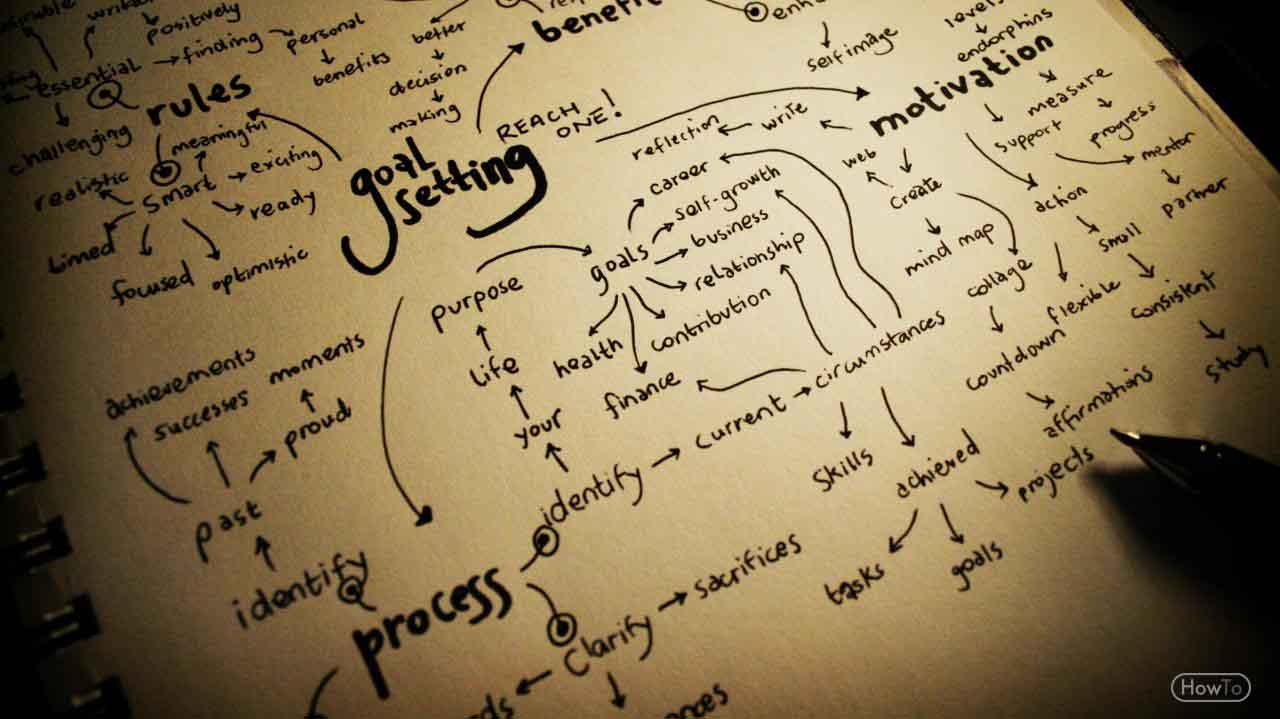 positively
essential
finding
personal
benefits
better
decision
making
rules
challenging
meaningful
realistic
smart
exciting
timed
ready
focused
optimistic
REACH
ONE!
goal
setting
selfimage
levels
endorphins
motivation
measure
progress
support
mentor
partner
write
reflection
web
create
mind map
collage
action
small
flexible
consistent
study
countdown
affirmations
career
self-growth
goals
business
relationship
contribution
health
finance
purpose
life
your
identify
current
circumstances
skills
achieved
projects
tasks
goals
achievements
successes
moments
proud
past
identify
process
Clarify
sacrifices
HowTo